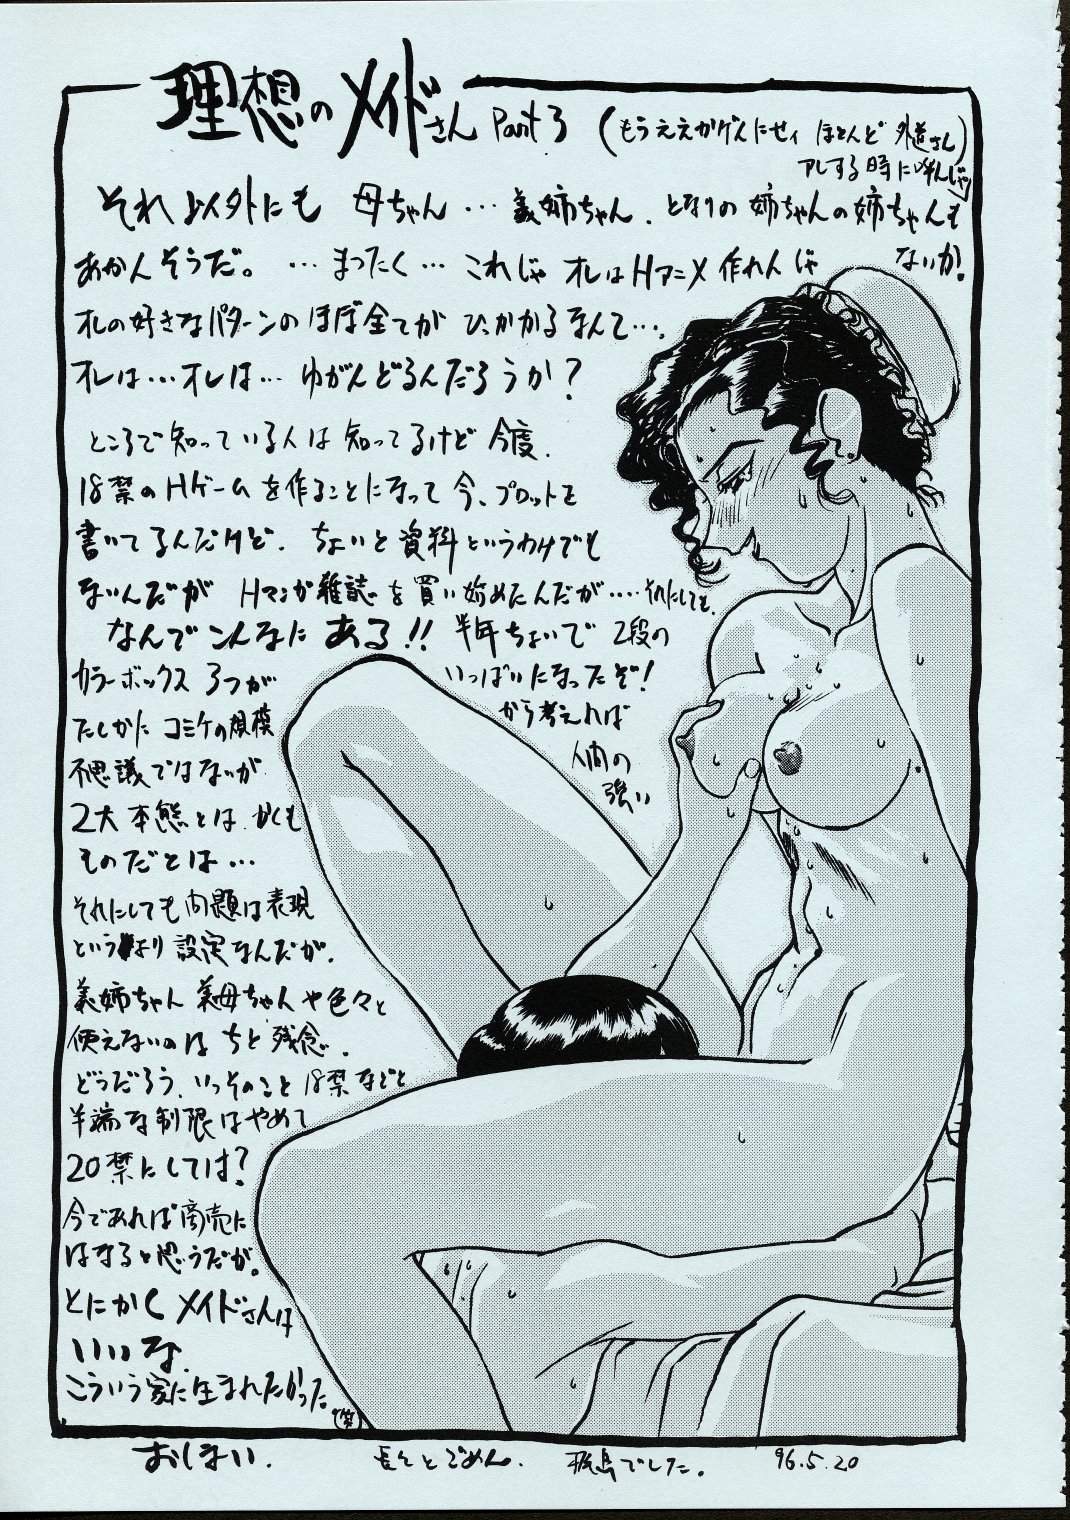 理想のメイドさん Part 3 (もうええかげんにせィ ほとんど 外道さん)
アレする時に呼んじゃ
それ以外にも 母ちゃん…義姉ちゃん、となりの姉ちゃんの姉ちゃんも
あかんそうだ。…まったく…これじゃ オレはHアニメ作れんじゃ ないか!
オレの好きなパターンのほぼ全てが ひっかかるなんて…、
オレは…オレは…ゆがんどるんだろうか?
ところで知っている人は知ってるけど今度、
18禁のHゲームを作ることになって今、プロットを
書いてるんだけど、ちょいと資料というわけでも
ないんだが Hマンガ雑誌を買い始めたんだが‥‥それにしても、
なんでこんなに ある!! 半年ちょいで 2段の
カラーボックス 3つが いっぱいになったぞ!
たしかに コミケの規模 から考えれば
不思議ではないが 人間の
2大本態とは、かくも 強い
ものだとは…
それにしても問題は表現
というより設定なんだが、
義姉ちゃん 義母ちゃんや色々と
使えないのは ちと残念、
どうだろう、いっそのこと 18禁などと
半端な制限はやめて
20禁にしては?
今であれば商売に
はなると思うだが。
とにかく メイドさんは
いいな、
こういう家に生まれたかった、
(笑)
おしまい. 長々とごめん. でした。 96.5.20